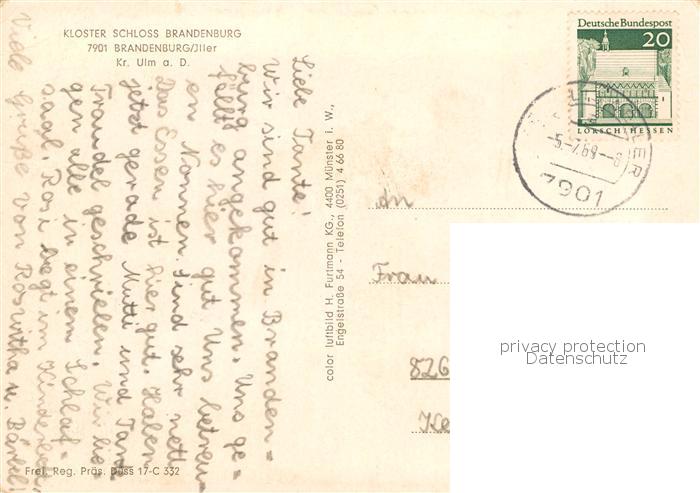 KLOSTER SCHLOSS BRANDENBURG
7901 BRANDENBURG/Jller
Kr. Ulm a. D.
Liebe Tante!
Wir sind gut in Branden=
burg angekommen. Uns ge=
fällt es hier gut. Uns betreu=
en Nonnen. Sind sehr nett.
Das Essen ist hier gut. Haben
jetzt gerade Mutti und Tante
Traudel geschrieben. Wir lie=
gen alle in einem Schlaf=
saal. Rosi liegt im Kinderbett
Viele Grüße von Roswitha u. Bärbel!
Frei. Reg. Präs. Düss 17-C 332
color luftbild H. Furtmann KG., 4400 Münster i. W.,
Engelstraße 54 - Telefon (0251) 4 66 80
Deutsche Bundespost
20
LORSCH/HESSEN
-5.-7.69.--8
7901
An
Frau
826
privacy protection
Datenschutz